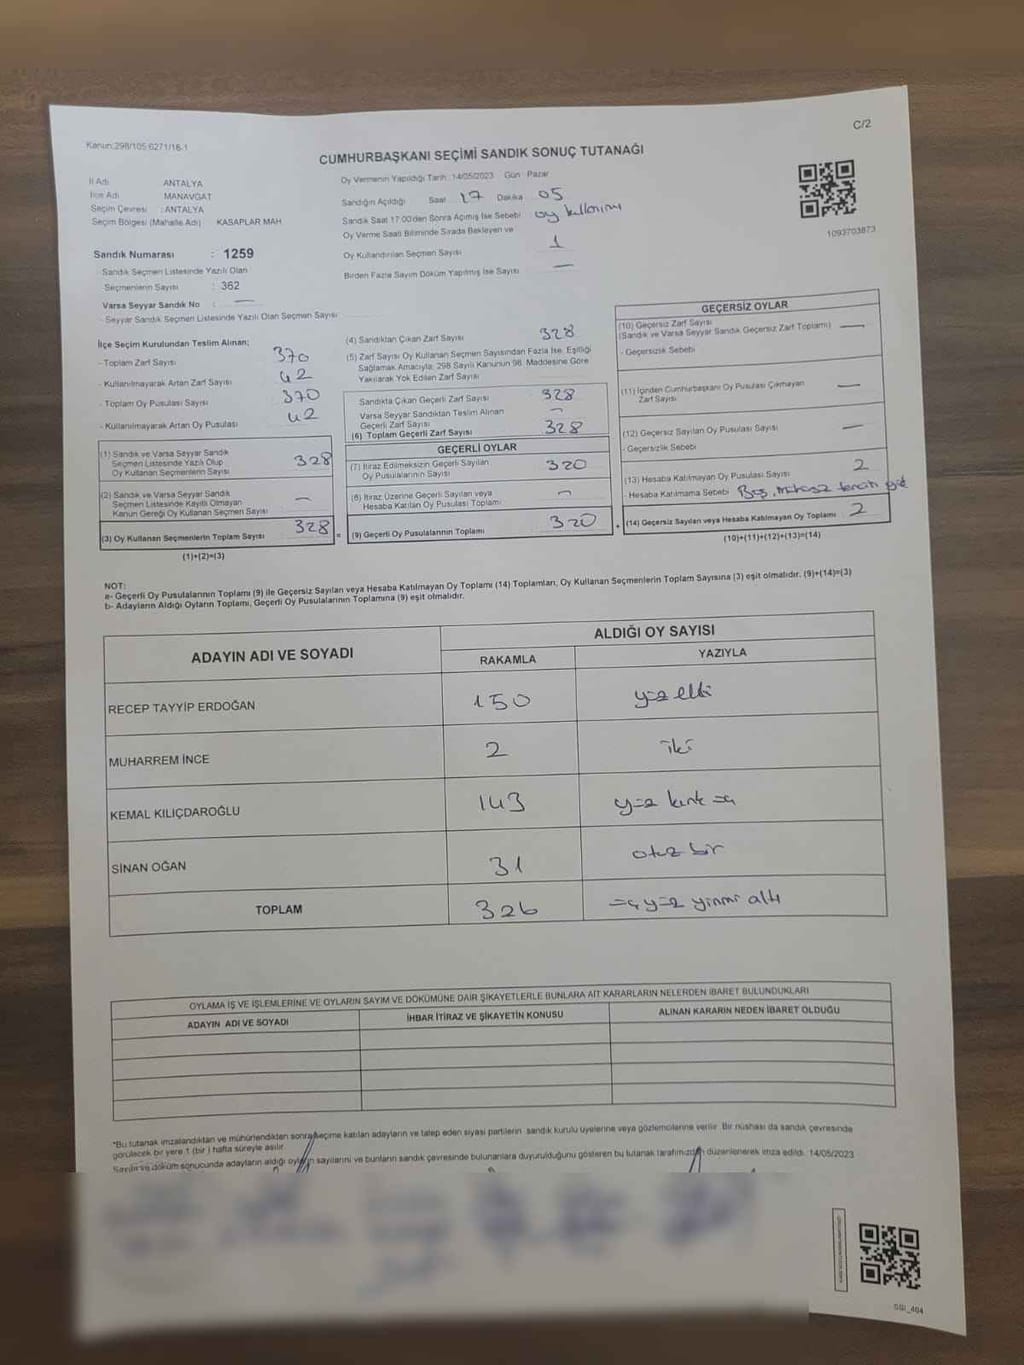 C/2
Kanun:298/105 6271/16-1
CUMHURBAŞKANI SEÇİMİ SANDIK SONUÇ TUTANAĞI
İl Adı ANTALYA
İlçe Adı MANAVGAT
Seçim Çevresi : ANTALYA
Seçim Bölgesi (Mahalle Adı) KASAPLAR MAH
Oy Vermenin Yapıldığı Tarih :14/05/2023 Gün Pazar
Sandığın Açıldığı Saat 17 Dakika 05
Sandık Saat 17:00'den Sonra Açılmış İse Sebebi oy kullanımı
Oy Verme Saati Bitiminde Sırada Bekleyen ve
Oy Kullandırılan Seçmen Sayısı 1
Birden Fazla Sayım Döküm Yapılmış İse Sayısı —
1093703873
Sandık Numarası : 1259
- Sandık Seçmen Listesinde Yazılı Olan
Seçmenlerin Sayısı : 362
Varsa Seyyar Sandık No : —
- Seyyar Sandık Seçmen Listesinde Yazılı Olan Seçmen Sayısı
İlçe Seçim Kurulundan Teslim Alınan;
- Toplam Zarf Sayısı 370
- Kullanılmayarak Artan Zarf Sayısı 42
- Toplam Oy Pusulası Sayısı 370
- Kullanılmayarak Artan Oy Pusulası 42
(1) Sandık ve Varsa Seyyar Sandık
Seçmen Listesinde Yazılı Olup
Oy Kullanan Seçmenlerin Sayısı 328
(2) Sandık ve Varsa Seyyar Sandık
Seçmen Listesinde Kayıtlı Olmayan
Kanun Gereği Oy Kullanan Seçmen Sayısı —
(3) Oy Kullanan Seçmenlerin Toplam Sayısı 328 =
(1)+(2)=(3)
(4) Sandıktan Çıkan Zarf Sayısı 328
(5) Zarf Sayısı Oy Kullanan Seçmen Sayısından Fazla İse, Eşitliği
Sağlamak Amacıyla; 298 Sayılı Kanunun 98. Maddesine Göre
Yakılarak Yok Edilen Zarf Sayısı
Sandıkta Çıkan Geçerli Zarf Sayısı 328
Varsa Seyyar Sandıktan Teslim Alınan
Geçerli Zarf Sayısı —
(6) Toplam Geçerli Zarf Sayısı 328
GEÇERLİ OYLAR
(7) İtiraz Edilmeksizin Geçerli Sayılan
Oy Pusulalarının Sayısı 320
(8) İtiraz Üzerine Geçerli Sayılan veya
Hesaba Katılan Oy Pusulası Toplamı —
(9) Geçerli Oy Pusulalarının Toplamı 320 +
GEÇERSİZ OYLAR
(10) Geçersiz Zarf Sayısı
(Sandık ve Varsa Seyyar Sandık Geçersiz Zarf Toplamı) —
- Geçersizlik Sebebi
(11) İçinden Cumhurbaşkanı Oy Pusulası Çıkmayan
Zarf Sayısı —
(12) Geçersiz Sayılan Oy Pusulası Sayısı —
- Geçersizlik Sebebi
(13) Hesaba Katılmayan Oy Pusulası Sayısı 2
- Hesaba Katılmama Sebebi Boş,
(14) Geçersiz Sayılan veya Hesaba Katılmayan Oy Toplamı 2
(10)+(11)+(12)+(13)=(14)
NOT:
a- Geçerli Oy Pusulalarının Toplamı (9) ile Geçersiz Sayılan veya Hesaba Katılmayan Oy Toplamı (14) Toplamları, Oy Kullanan Seçmenlerin Toplam Sayısına (3) eşit olmalıdır. (9)+(14)=(3)
b- Adayların Aldığı Oyların Toplamı, Geçerli Oy Pusulalarının Toplamına (9) eşit olmalıdır.
ADAYIN ADI VE SOYADI
ALDIĞI OY SAYISI
RAKAMLA YAZIYLA
RECEP TAYYİP ERDOĞAN 150 yüz elli
MUHARREM İNCE 2 iki
KEMAL KILIÇDAROĞLU 143 yüz kırk üç
SİNAN OĞAN 31 otuz bir
TOPLAM 326 üç yüz yirmi altı
OYLAMA İŞ VE İŞLEMLERİNE VE OYLARIN SAYIM VE DÖKÜMÜNE DAİR ŞİKAYETLERLE BUNLARA AİT KARARLARIN NELERDEN İBARET BULUNDUKLARI
ADAYIN ADI VE SOYADI İHBAR İTİRAZ VE ŞİKAYETİN KONUSU ALINAN KARARIN NEDEN İBARET OLDUĞU
*Bu tutanak imzalandıktan ve mühürlendikten sonra seçime katılan adayların ve talep eden siyasi partilerin sandık kurulu üyelerine veya gözlemcilerine verilir. Bir nüshası da sandık çevresinde
görülecek bir yere 1 (bir) hafta süreyle asılır.
Sayım ve döküm sonucunda adayların aldığı oyların sayılarını ve bunların sandık çevresinde bulunanlara duyurulduğunu gösteren bu tutanak tarafımızdan düzenlenerek imza edildi. 14/05/2023